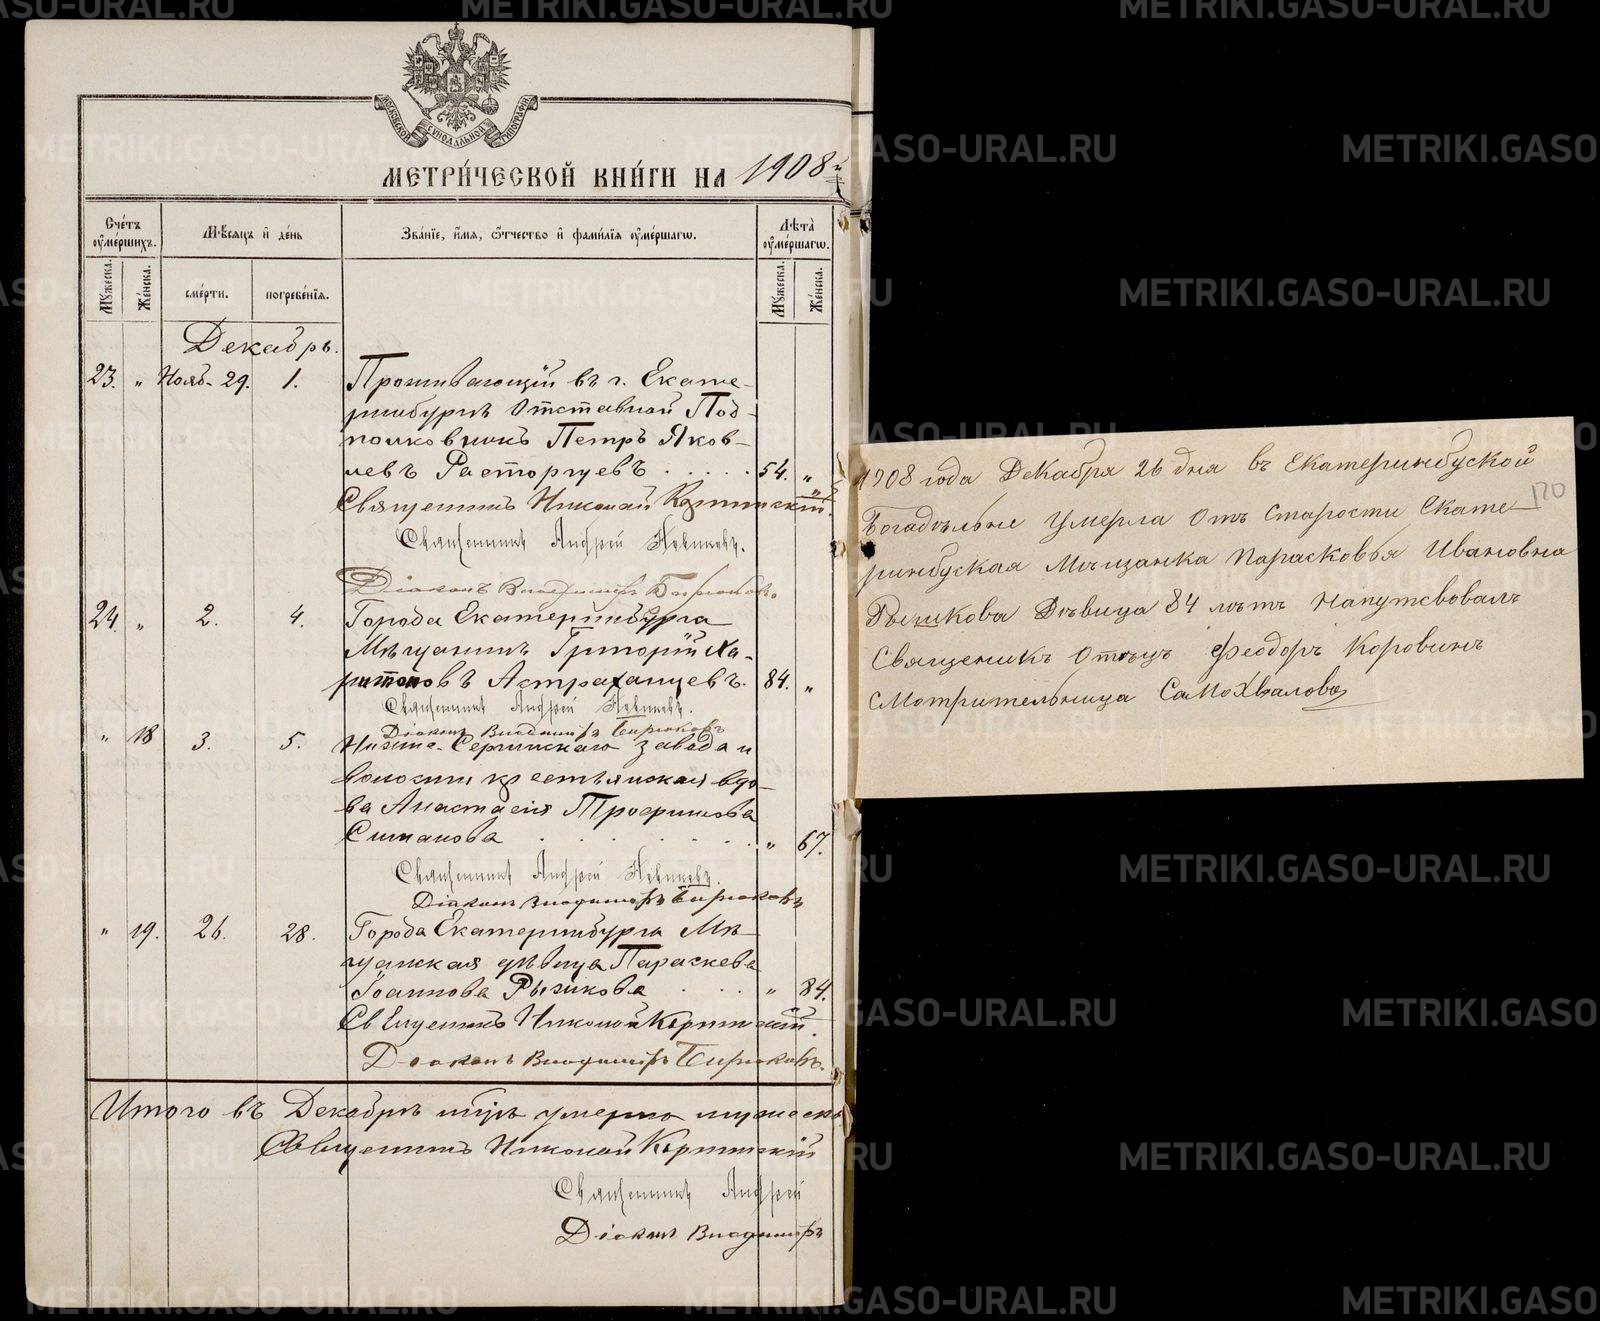 МОСКОВСКОЙ СѴНОДАЛЬНОЙ ТИПОГРАФІИ
МЕТРИ́ЧЕСКОЙ КНИ́ГИ НА 1908й
Сче́тъ ᲂу҆ме́ршихъ.
Мѣ́сяцъ и҆ де́нь
Зва́нїе, и҆́мѧ, ѻ҆́тчество и҆ фами́лїѧ ᲂу҆ме́ршагѡ.
Лѣ́та ᲂу҆ме́ршагѡ.
Мꙋ́жеска.
Же́нска.
сме́рти.
погребе́нїѧ.
Мꙋ́жеска.
Же́нска.
Декабрь.
23. " Нояб. 29. 1. Проживающій въ г. Екате-
ринбургѣ Отставной Под-
полковникъ Петръ Яков-
левъ Расторгуевъ . . . . . 54. "
Священникъ Николай
Священникъ Андрей
Діаконъ Владиміръ Бирюковъ
24. " 2. 4. Города Екатеринбурга
Мѣщанинъ Григорій Ха-
ритоновъ Астраханцевъ. 84. "
Священникъ Андрей
Діаконъ Владиміръ Бирюковъ
" 18 3. 5. Нижне-Сергинскаго завода и
волости крестьянская вдо-
ва Анастасія Трофимова
Симанова . . . . . . . " 67.
Священникъ Андрей
Діаконъ Владиміръ Бирюковъ
" 19. 26. 28. Города Екатеринбурга Мѣ-
щанская дѣвица Параскева
Іоаннова Рыжкова . . . . " 84.
Священникъ Николай
Діаконъ Владиміръ Бирюковъ.
Итого въ Декабрѣ м҃цѣ умерло мужеска
Священникъ Николай
Священникъ Андрей
Діаконъ Владиміръ
1908 года Декабря 26 дня въ Екатеринбуской
120
Богадѣльне Умерла Отъ Старости Екате
ринбуская Мѣщанка Парасковья Ивановна
Рышкова Дѣвица 84 лѣтъ Напутсвовалъ
Священикъ Отецъ Феодоръ Коровинъ
Смотрительница Самохвалова
METRIKI.GASO-URAL.RU